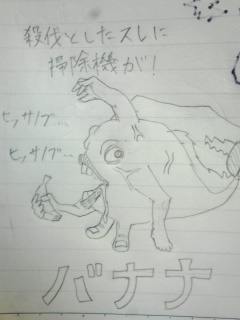 殺伐としたスレに
掃除機が!
ヒッサノブ…
ヒッサノブ…
バナナ